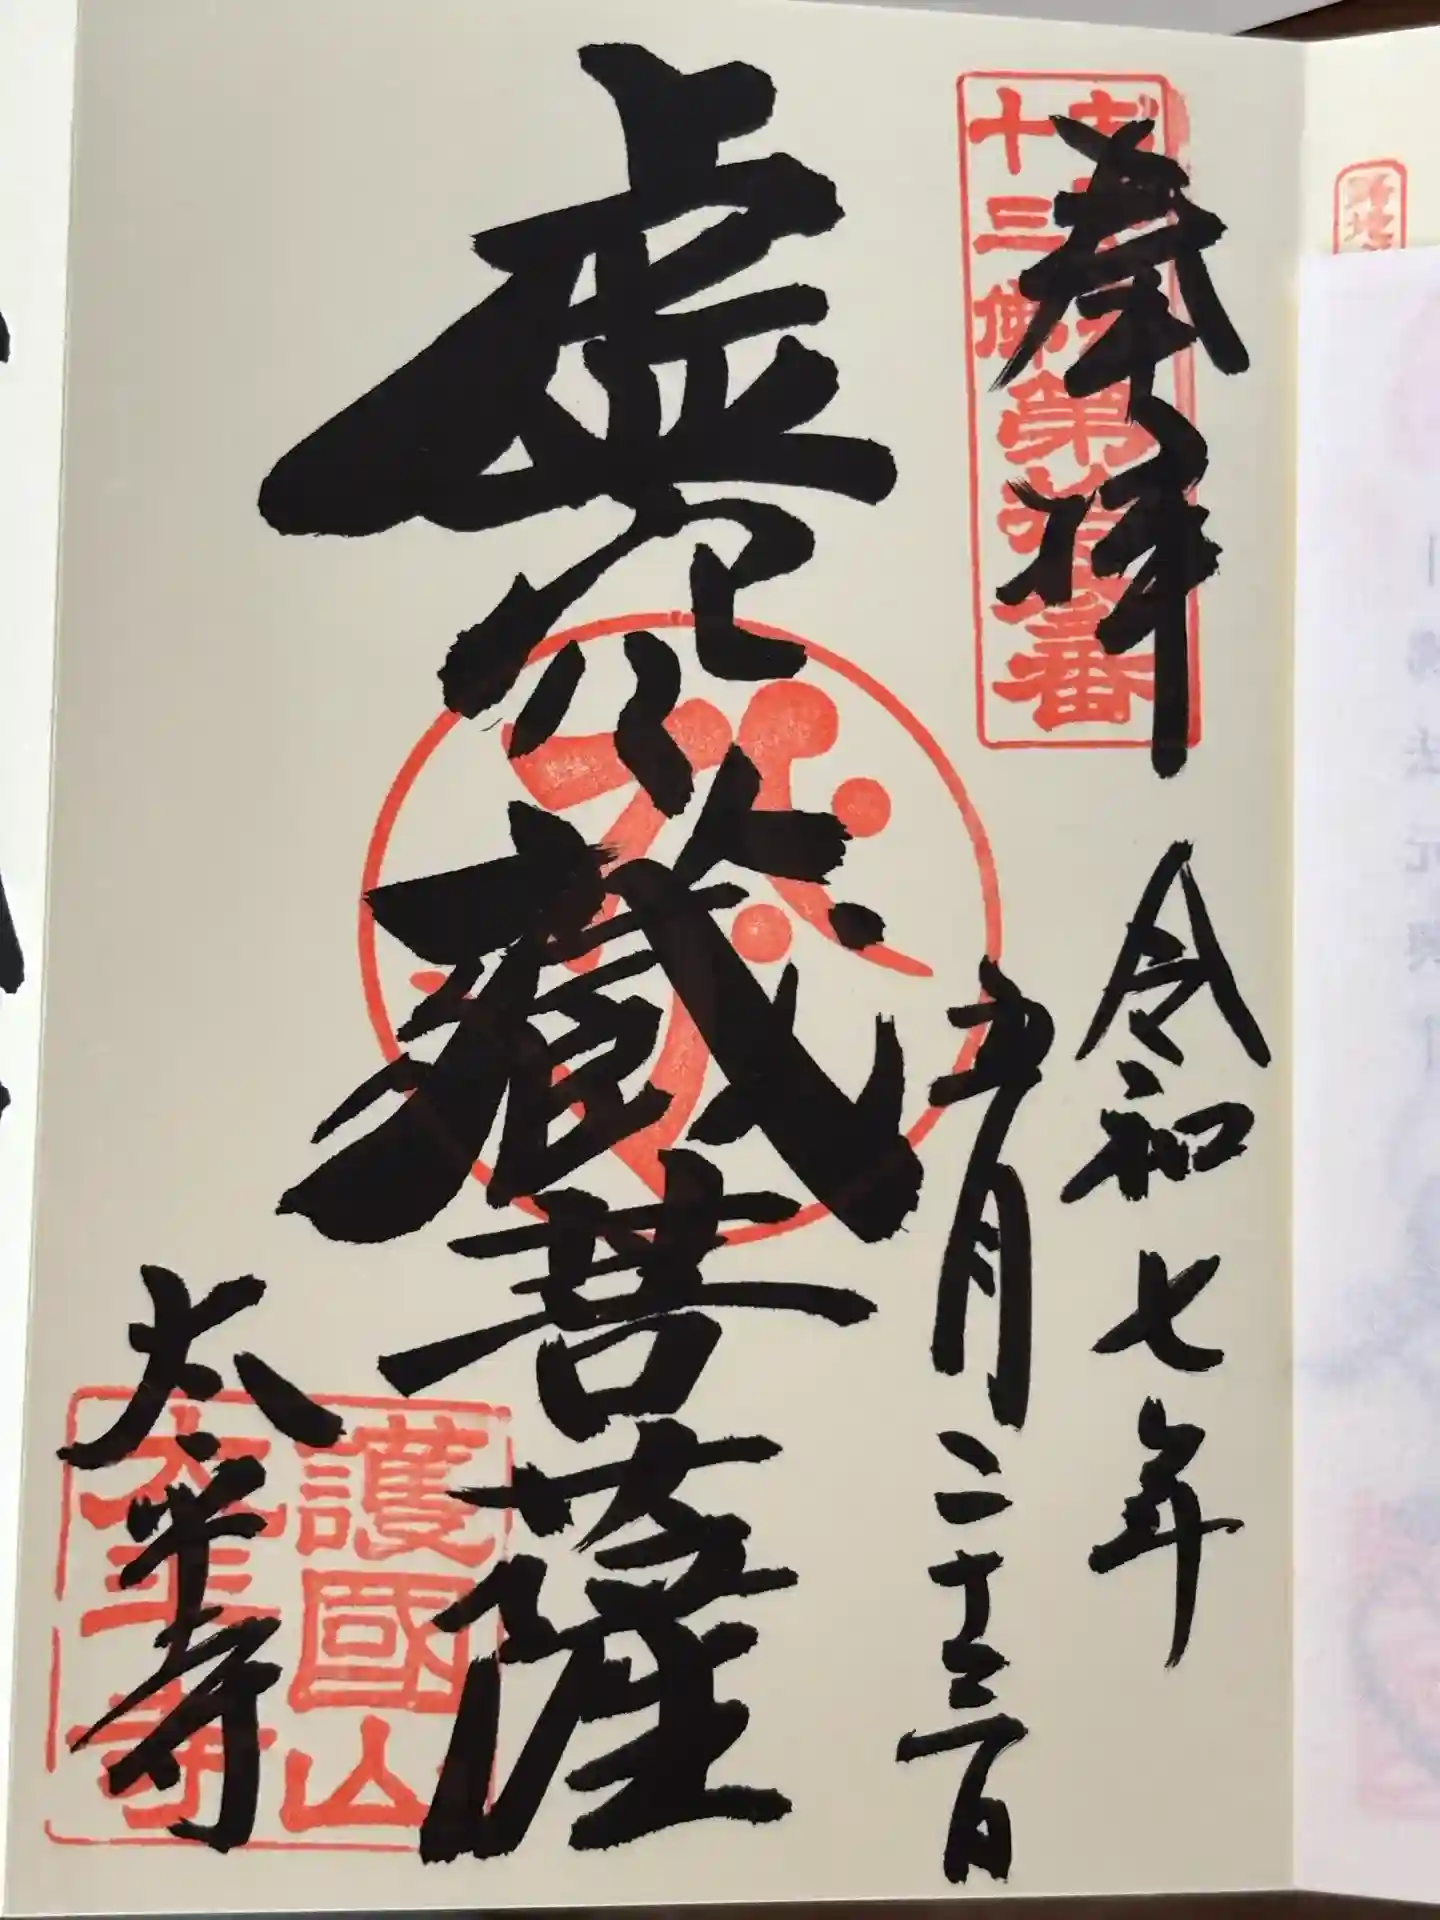 奉拝
十三佛
第拾三番
令和七年
五月二十三日
虚空蔵菩薩
太平寺
護國山
太平寺